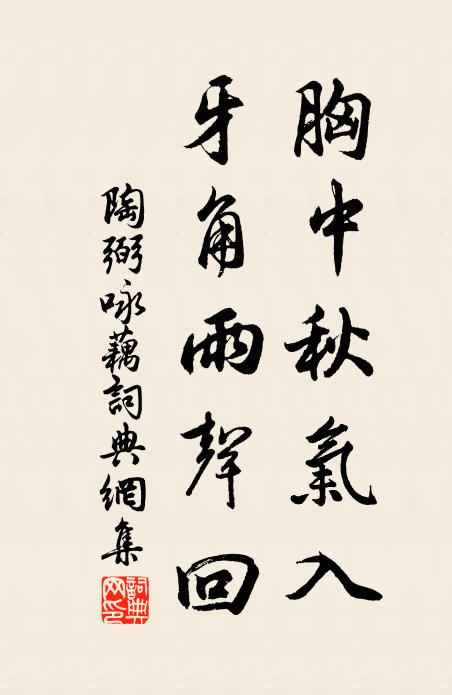 胸中秋氣入
牙角雨聲回
陶弼咏藕詞典網集
詞典网印